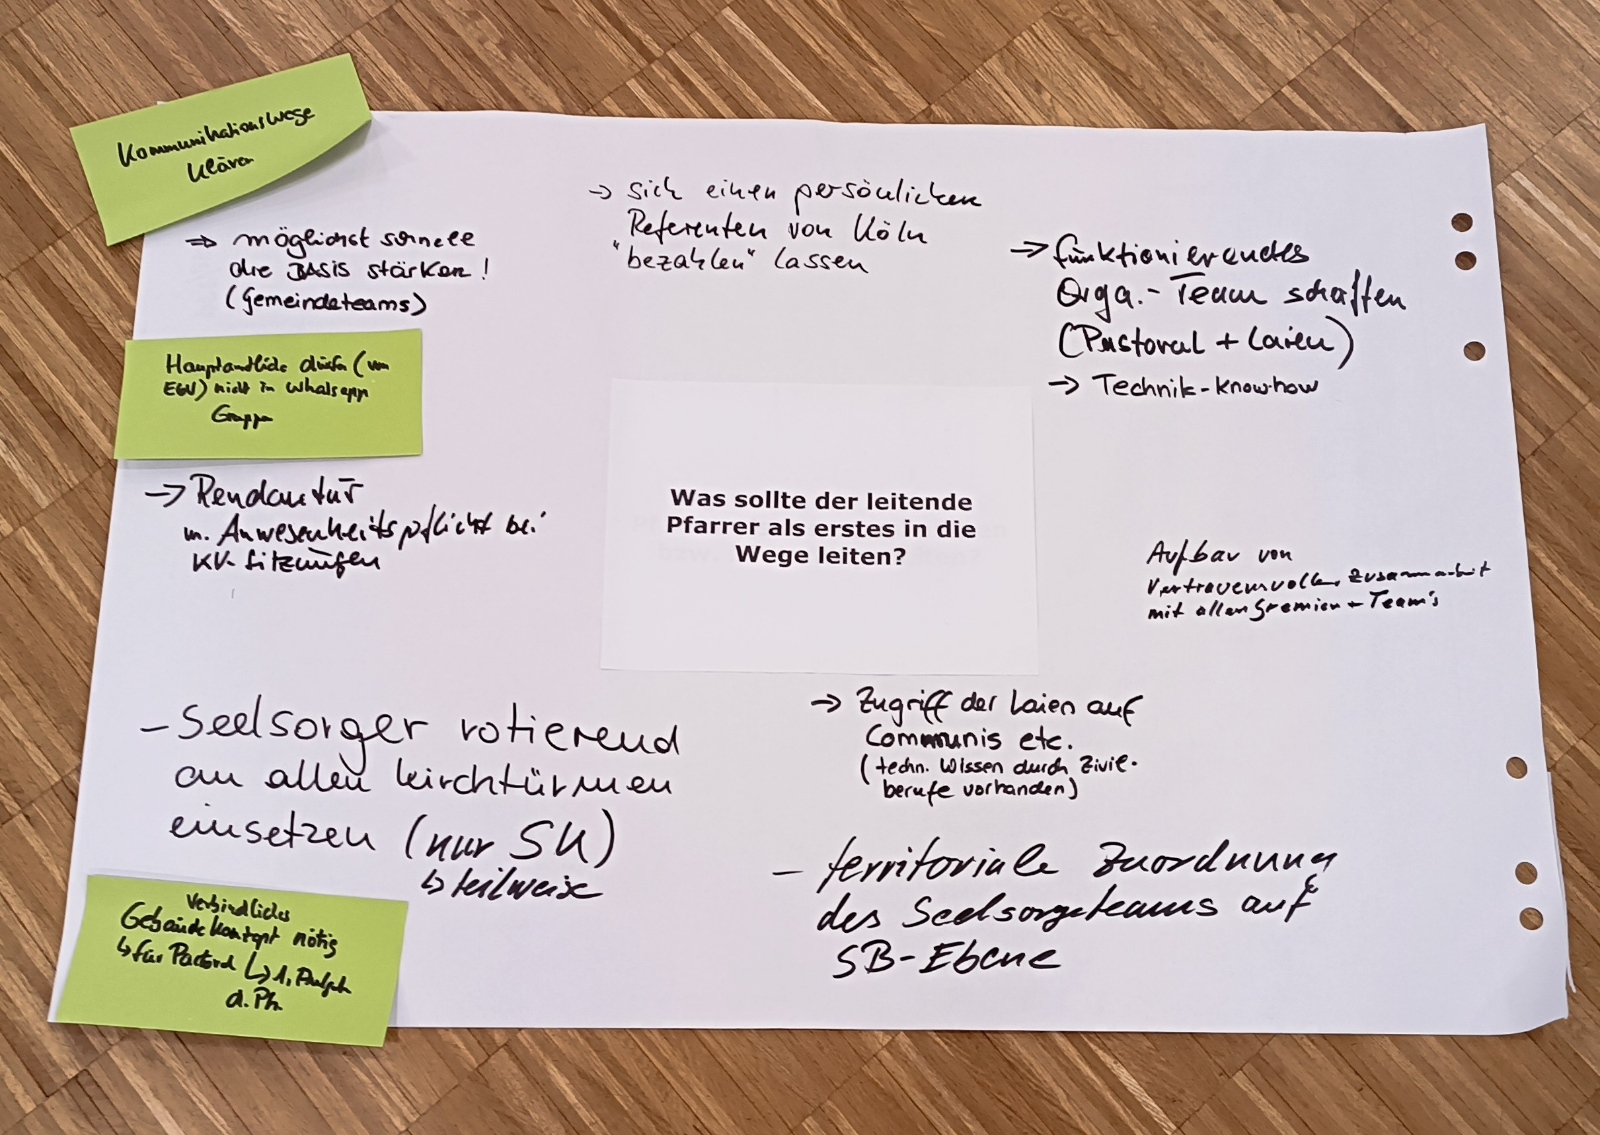 Kommunikationswege
klären
⇒ möglichst schnell
die BASIS stärken!
(Gemeindeteams)
→ sich einen persönlichen
Referenten von Köln
"bezahlen" lassen
→ funktionierendes
Orga.-Team schaffen
(Pastoral + Laien)
→ Technik-knowhow
Hauptamtliche dürfen (von
EGV) nicht in Whatsapp
Gruppen
Was sollte der leitende
Pfarrer als erstes in die
Wege leiten?
→ Rendantur
m. Anwesenheitspflicht bei
KV-Sitzungen
Aufbau von
vertrauensvoller Zusammenarbeit
mit allen Gremien + Team's
- Seelsorger rotierend
an allen Kirchtürmen
einsetzen (nur SU)
↳ teilweise
→ Zugriff der Laien auf
Communis etc.
(techn. Wissen durch Zivil-
berufe vorhanden)
- territoriale Zuordnung
des Seelsorgeteams auf
SB-Ebene
Verbindliches
Gebäudekonzept nötig
↳ für Pastoral ↳ 1. Aufgabe
d. Pfr.